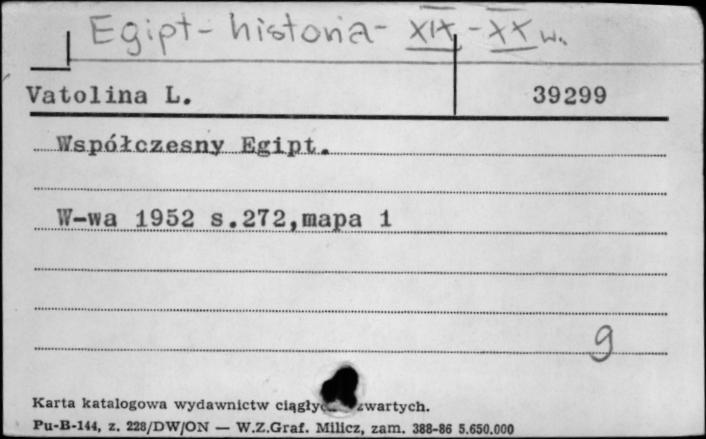 Egipt - historia - XIX - XX w.
Vatolina L. 39299
Współczesny Egipt.
W-wa 1952 s.272,mapa 1
9
Karta katalogowa wydawnictw zwartych.
Pu-B-144, z. 228/DW/ON — W.Z.Graf. Milicz, zam. 388-86 5.650.000